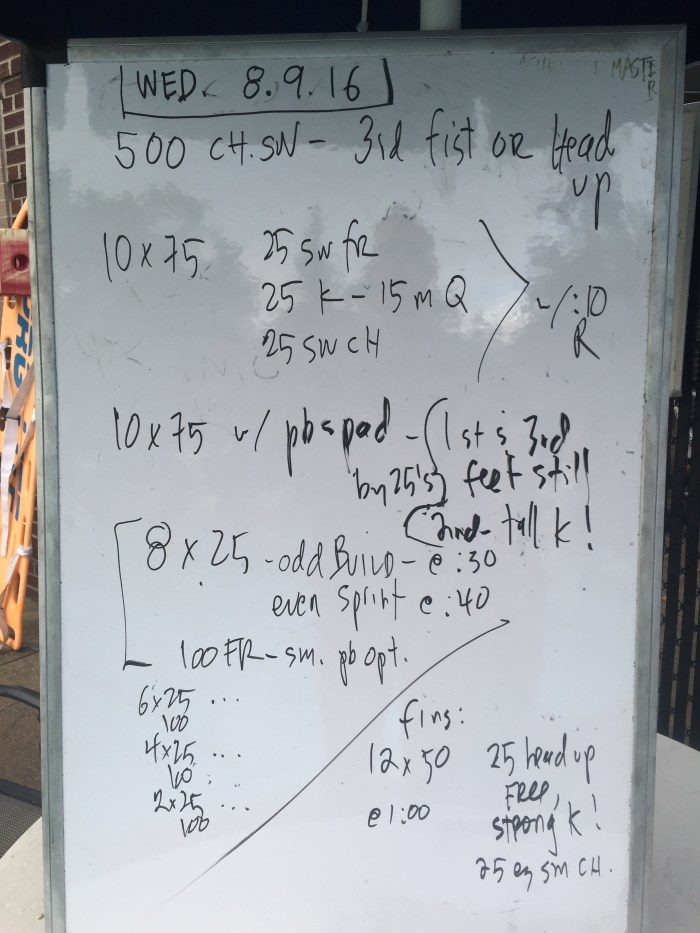 MASTER
WED. 8.9.16
500 CH.SW - 3rd fist OR Head
up
10 x 75 25 SW fR
25 K - 15 m Q
25 SW CH
w/ :10
R
10 x 75 w/ pb & pad - (1st & 3rd
by 25's) feet still
(2nd - tall K!
8 x 25 - odd BUILD - @ :30
even SpRint @ :40
100 FR - sm. pb opt.
6x25 ...
100
4x25 ...
100
2x25 ...
100
fins:
12 x 50 25 head up
FREE,
@ 1:00 strong K!
25 ez sm CH.